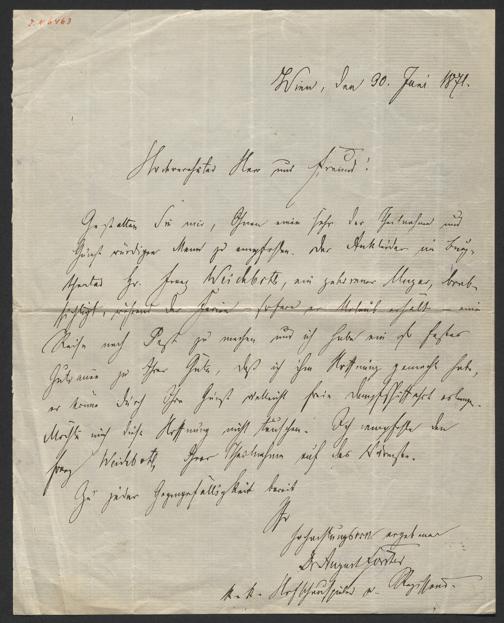 J.N. 6463
Wien, den 30. Juni 1871.
Hochverehrter Herr und Freund!
Gestatten Sie mir, Ihnen einen sehr der Theilnahme und
Gunst würdigen Mann zu empfehlen. Der Ankleider im Burg-
theater Hr. Franz Weideborth, ein geborener Ungar, beab-
sichtigt, während der Ferien – sofern er Urlaub erhält – eine
Reise nach Pest zu machen und ich habe ein so festes
Zutrauen zu Ihrer Güte, daß ich ihm Hoffnung gemacht habe,
er könne durch Ihre Gunst vielleicht freie Dampfschiffahrt erlangen.
Möchte mich diese Hoffnung nicht täuschen. Ich empfehle den
Franz Weideborth Ihrer Theilnahme auf das Wärmste.
Zu jeder Gegengefälligkeit bereit
Ihr
hochachtungsvoll ergebener
Dr August Förster
k. k. Hofschauspieler u. Regisseur.